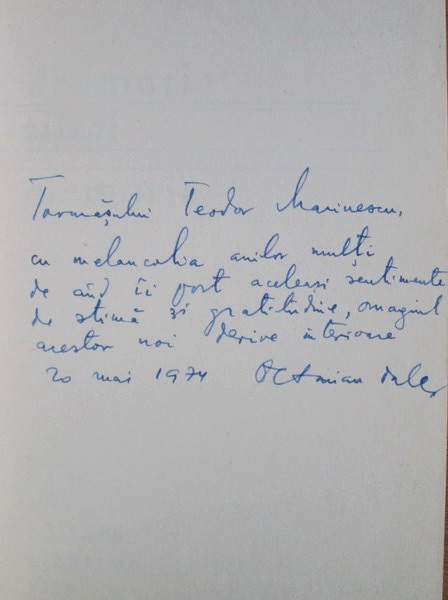 Tovarășului Teodor Marinescu,
cu melancolia anilor mulți
de când îi port aceleași sentimente
de stimă și gratitudine, omagiul
acestor noi derive interioare
20 mai 1974 Octavian